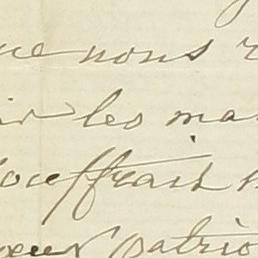 que nous r
ir les ma
souffrait
eux patrio